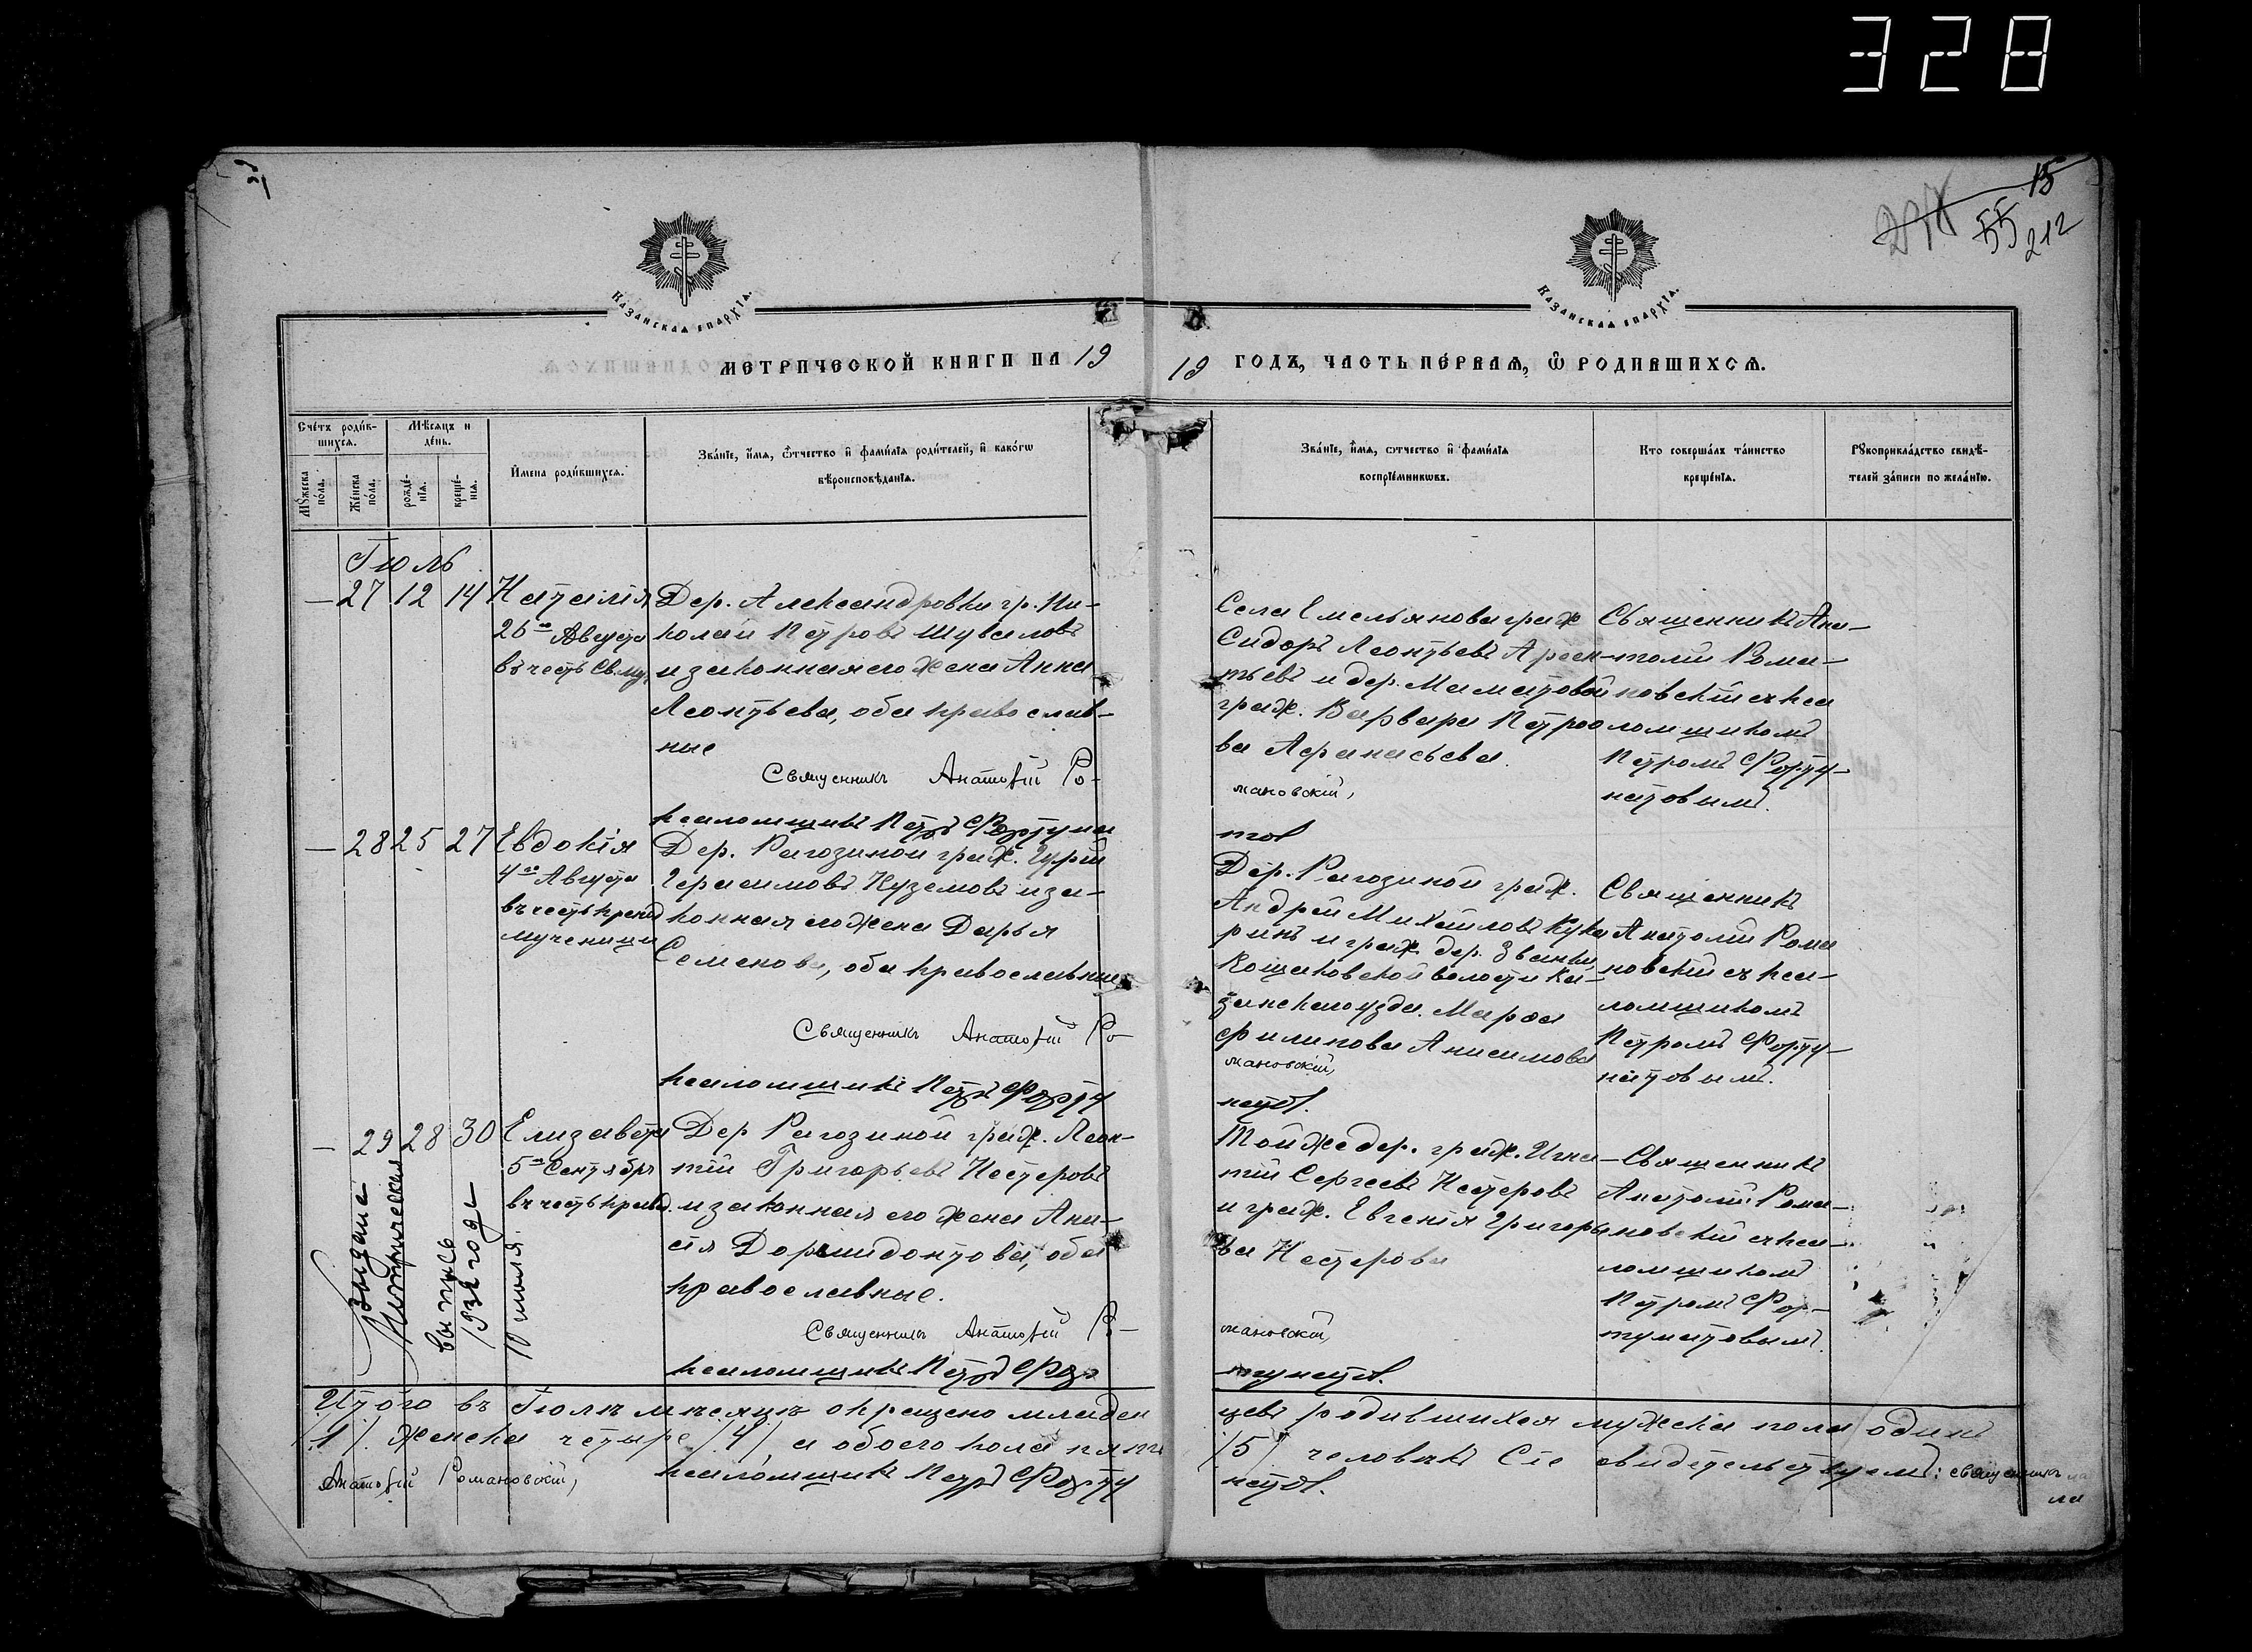 328
15
55
212
Казанская епархїа.
Казанская епархїа.
МЕТРИЧЕСКОЙ КНИГИ НА 19
19 ГОДЪ, ЧАСТЬ ПЕ́РВАЯ, Ѿ РОДИВШИХСѦ.
Сче́тъ роди́в-
шихся.
Мѣ́сяцъ и
де́нь.
Мꙋ́жеска
по́ла.
Же́нска
по́ла.
рожде́-
нїѧ.
креще́-
нїѧ.
И҆мена роди́вшихся.
Зва́нїе, и҆́мѧ, ѻ҆́тчество и҆ фами́лїѧ роди́телей, и҆ како́гѡ
вѣроисповѣ́данїѧ.
Зва́нїе, и҆́мѧ, ѻ҆тчество и҆ фами́лїѧ
воспрїе́мниковъ.
Кто соверша́лъ та́инство
креще́нїѧ.
Рꙋкоприкла́дство свидѣ́-
телей за́писи по жела́нїю.
Іюль
— 27 12 14 Наталія
26го Августа
въ честь Св. му.
Дер. Александровки гр. Ни-
колай Петровъ Шуваловъ
и законная его жена Анна
Леонтьева, оба православ-
ные
Священникъ Анатолій Ро-
псаломщикъ Петръ Фортуна
Села Емельянова граж
Сидоръ Леонтьевъ Арсен-
тьевъ и дер. Маматовой
граж. Варвара Петро
ва Афанасьева.
мановскій,
тов
Священникъ Ана-
толій Рома-
новскій съ пса
ломщикомъ
Петромъ Форту-
натовымъ.
— 28 25 27 Евдокія
4го Августа
въ честь препод
мученицы
Дер. Рагозиной граж. Гурій
Герасимовъ Куземовъ и за-
конная его жена Дарья
Семенова, оба православные
Священникъ Анатолій Ро-
псаломщикъ Петръ Форту
Дер. Рагозиной граж.
Андрей Михайловъ Кука
ринъ и граж. дер. Званки,
Кощаковской волости Ка-
занскаго уѣзда. Марѳа
Филипова Анисимова
мановскій,
натов.
Священникъ
Анатолій Рома
новскій съ пса-
ломщикомъ
Петромъ Форту-
натовымъ.
— 29 28 30 Елизавета
5го Сентября
въ честь правед.
Дер Рагозиной граж. Леон-
тій Григорьевъ Нестеровъ
и законная его жена Ана-
сія Дормидонтова, оба
православные.
Священникъ Анатолій Ро-
псаломщикъ Петръ Фор
Той же дер. граж. Игна-
тій Сергеевъ Нестеровъ
и граж. Евгенія Григорье
ва Нестерова
мановскій,
тунатов.
Священникъ
Анатолій Рома-
новскій съ пса-
ломщикомъ
Петромъ Фор-
тунатовымъ.
Метрическая
выпись
года
10 июля.
Итого въ Іюлѣ мѣсяцѣ окрещено младен
цевъ родившихся мужска пола одинъ
/1/. женска четыре /4/ а обоего пола пять
/5/ человѣкъ Сіе свидетельствуемъ: священникъ
Анатолій Романовскій,
псаломщикъ Петръ Форту
натов.